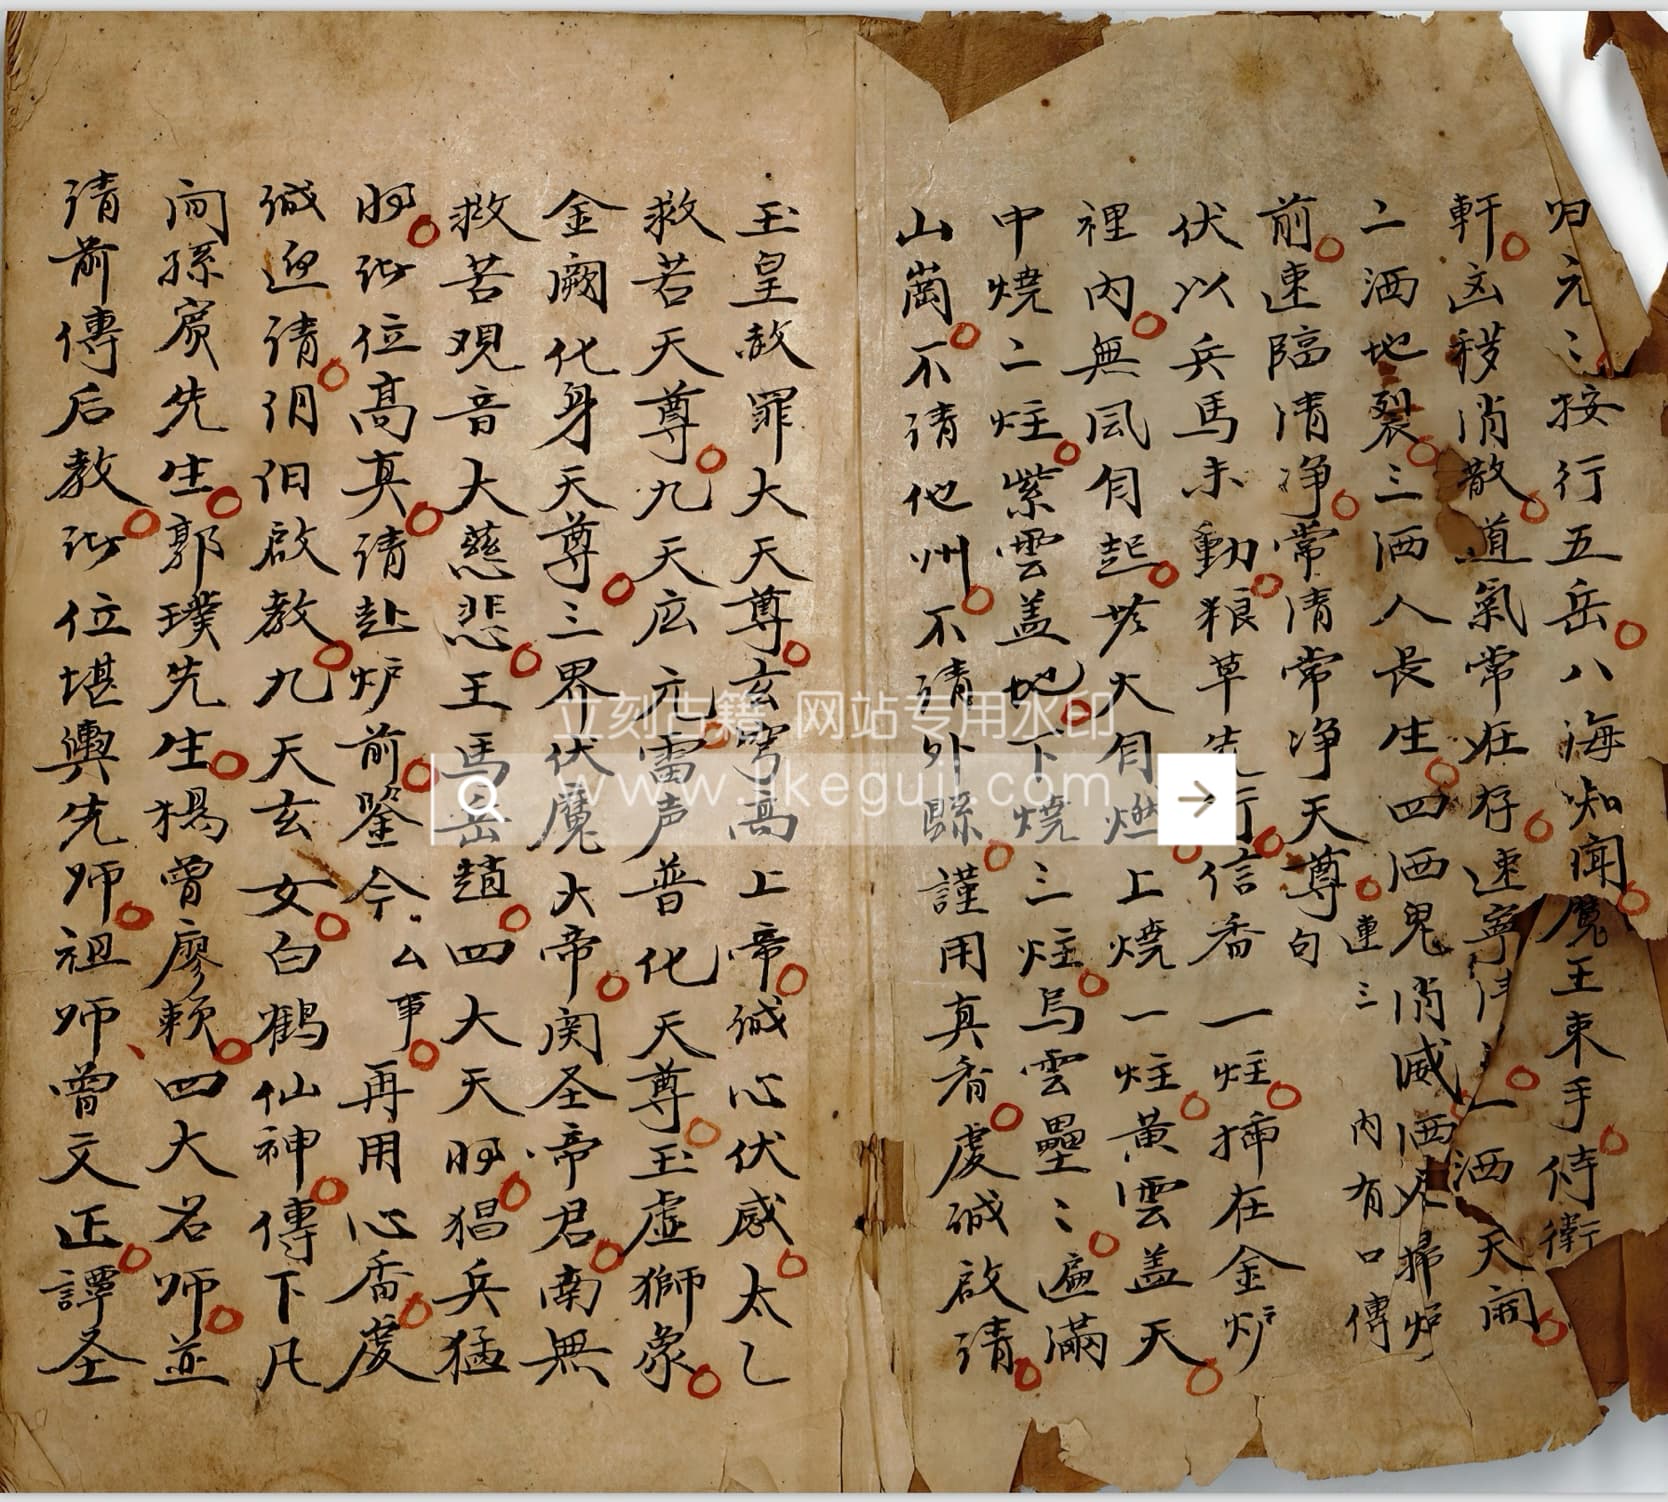 归元〻按行五岳八海知闻魔王束手侍衛
軒凶穢消散道氣常在存速寧 一洒天開
二洒地裂三洒人長生四洒鬼消滅洒 歸炉
前速臨清净常清常净天尊句 連三 内有口傳
伏以兵馬未動粮草先行信香一炷插在金炉
裡内無風自起 火自燃上燒一炷黃雲盖天
中燒二炷紫雲盖地下燒三炷烏雲壘〻遍滿
山崗不請他州不請外縣謹用真香虔诚啟請
玉皇赦罪大天尊玄穹高上帝诚心伏感太乙
救苦天尊九天应元雷声普化天尊玉虛獅象
金闕化身天尊三界伏魔大帝関圣帝君南無
救苦观音大慈悲王馬岳趙四大天將猖兵猛
將沘位高真請赴炉前鉴今厶事再用心香虔
诚迎請佀佀啟教九天玄女白鶴仙神傳下凡
间孫宾先生郭璞先生楊曾廖赖四大名师並
請前傳后教沘位堪輿先师祖师曾文正譚圣
立刻古籍 网站专用水印
www.likeguji.com